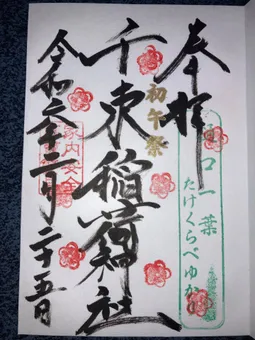 奉拝
口一葉
たけくらべゆかり
初午祭
千束稲荷神社
家内安全
令和六年二月二十五日